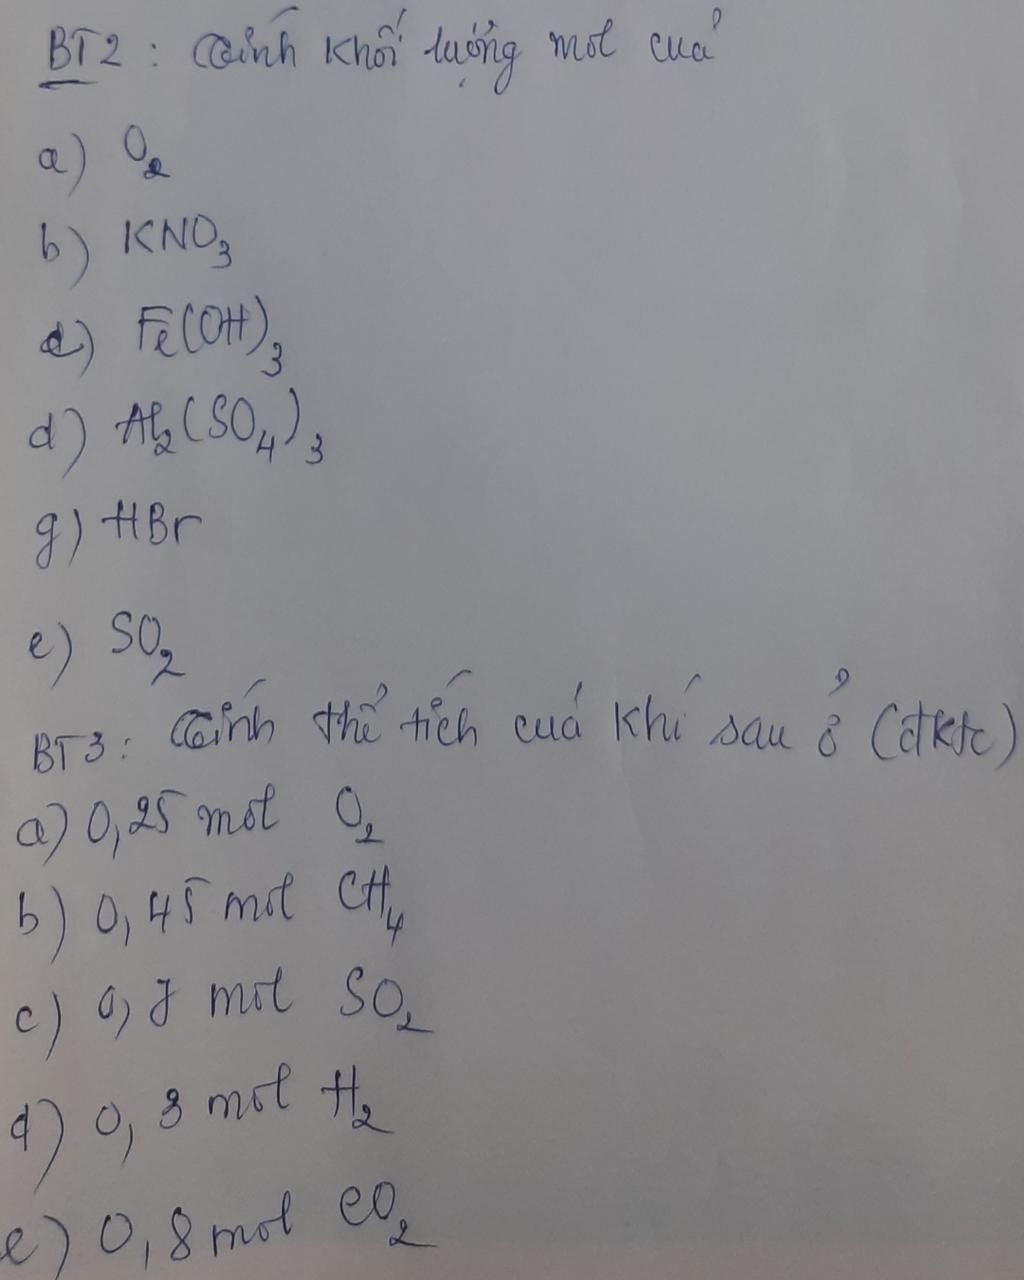 BT2 : Tính khối lượng mol của
a) O₂
b) KNO₃
c) Fe(OH)₃
d) Al₂(SO₄)₃
g) HBr
e) SO₂
BT3 : Tính thể tích của khí sau ở (đktc)
a) 0,25 mol O₂
b) 0,45 mol CH₄
c) 0,7 mol SO₂
d) 0,3 mol H₂
e) 0,8 mol CO₂